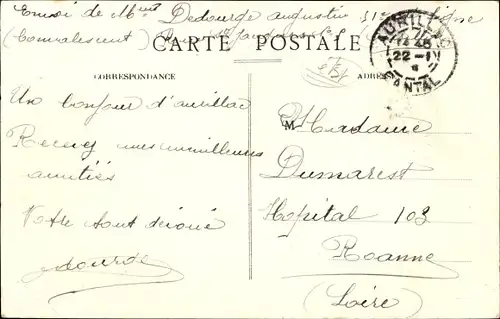 Envoi de Mr Dedourge augustin 31e ligne
(Convalescent)
CARTE POSTALE
AURILLAC
22-1
CANTAL
CORRESPONDANCE
ADRESSE
Un bonjour d'aurillac
Recevez mes meilleures
amitiés
Votre tout dévoué
Dedourge
Madame
Dumarest
Hopital 103
Roanne
(Loire)